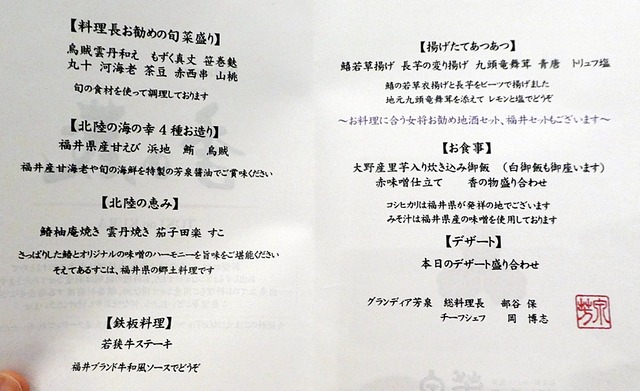 【料理長お勧めの旬菜盛り】
烏賊雲丹和え もずく真丈 笹巻麩
丸十 河海老 茶豆 赤西串 山桃
旬の食材を使って調理しております
【北陸の海の幸4種お造り】
福井県産甘えび 浜地 鮪 烏賊
福井産甘海老や旬の海鮮を特製の芳泉醤油でご賞味ください
【北陸の恵み】
鰆柚庵焼き 雲丹焼き 茄子田楽 すこ
さっぱりした鰆とオリジナルの味噌のハーモニーを旨味をご堪能ください
そえてあるすこは、福井県の郷土料理です
【鉄板料理】
若狭牛ステーキ
福井ブランド牛和風ソースでどうぞ
【揚げたてあつあつ】
鱚若草揚げ 長芋の変り揚げ 九頭竜舞茸 青唐 トリュフ塩
鱚の若草衣揚げと長芋をビーツで揚げました
地元九頭竜舞茸を添えて レモンと塩でどうぞ
～お料理に合う女将お勧め地酒セット、福井セットもございます～
【お食事】
大野産里芋入り炊き込み御飯 (白御飯も御座います)
赤味噌仕立て 香の物盛り合わせ
コシヒカリは福井県が発祥の地でございます
みそ汁は福井県産の味噌を使用しております
【デザート】
本日のデザート盛り合わせ
グランディア芳泉 総料理長 部谷 保
チーフシェフ 岡 博志
芳泉